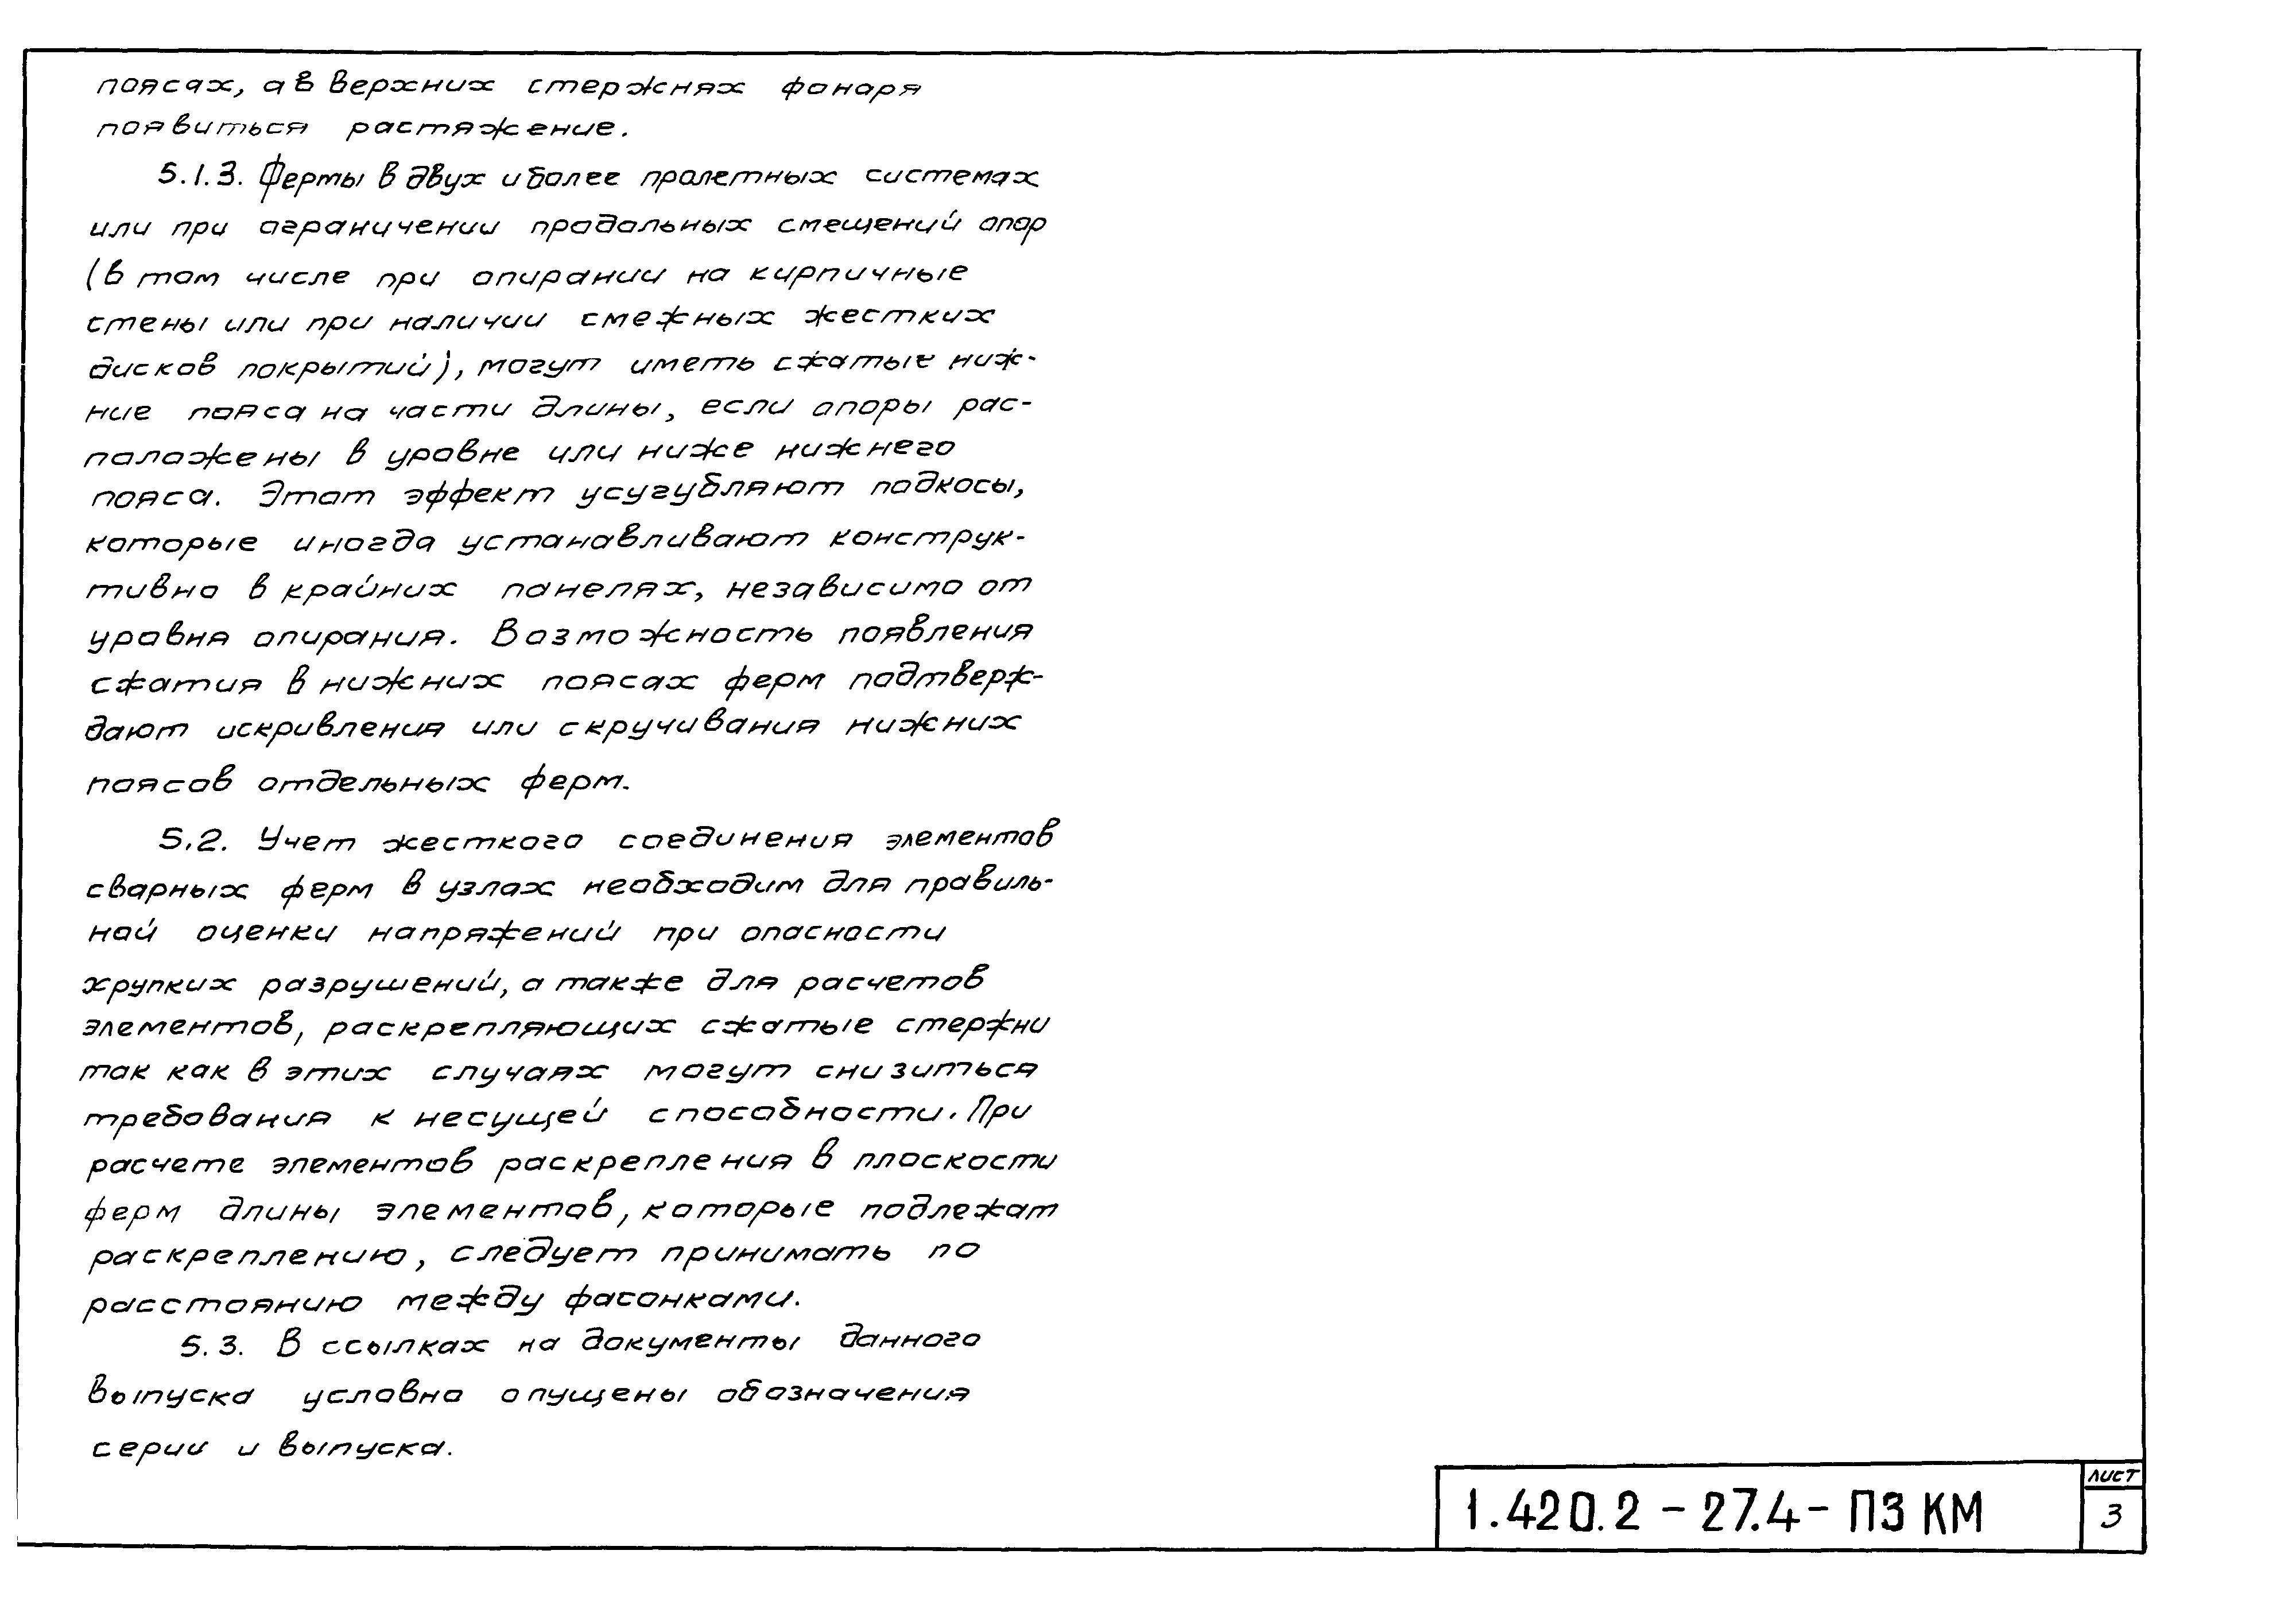 поясах, а в верхних стержнях фонаря
появиться растяжение.
5.1.3. Фермы в двух и более пролетных системах
или при ограничении продольных смещений опор
(в том числе при опирании на кирпичные
стены или при наличии смежных жестких
дисков покрытий), могут иметь сжатые ниж-
ние пояса на части длины, если опоры рас-
положены в уровне или ниже нижнего
пояса. Этот эффект усугубляют подкосы,
которые иногда устанавливают конструк-
тивно в крайних панелях, независимо от
уровня опирания. Возможность появления
сжатия в нижних поясах ферм подтверж-
дают искривления или скручивания нижних
поясов отдельных ферм.
5.2. Учет жесткого соединения элементов
сварных ферм в узлах необходим для правиль-
ной оценки напряжений при опасности
хрупких разрушений, а также для расчетов
элементов, раскрепляющих сжатые стержни
так как в этих случаях могут снизиться
требования к несущей способности. При
расчете элементов раскрепления в плоскости
ферм длины элементов, которые подлежат
раскреплению, следует принимать по
расстоянию между фасонками.
5.3. В ссылках на документы данного
выпуска условно опущены обозначения
серии и выпуска.
1.420.2 - 27.4 - ПЗ КМ
лист
3